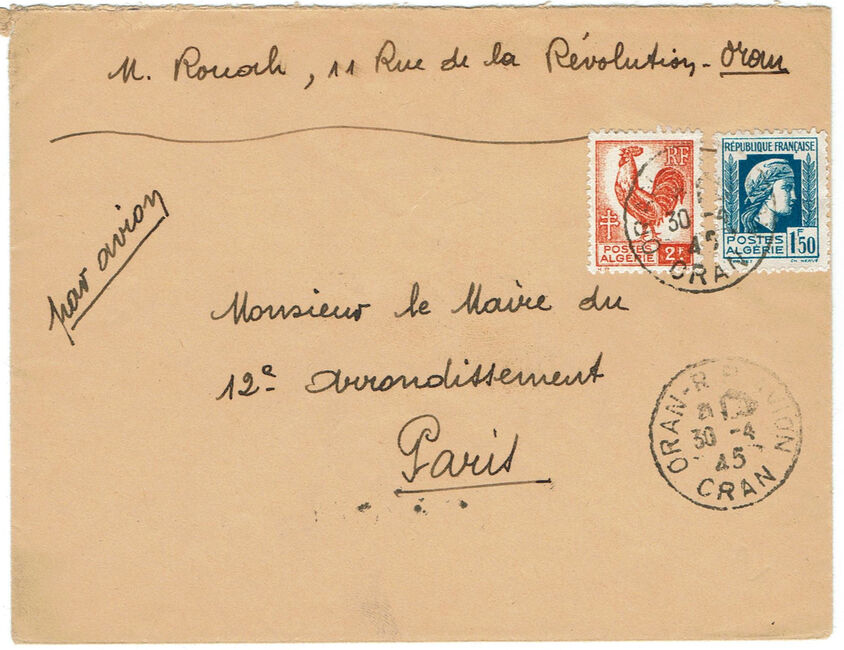 M. Rouah, 11 Rue de la Révolution - Oran
par avion
RF
POSTES
ALGÉRIE
2F
RÉPUBLIQUE FRANÇAISE
POSTES
ALGÉRIE
1F50
30
45
ORAN
Monsieur le Maire du
12e Arrondissement
Paris
ORAN-R
30 -4
45
ORAN